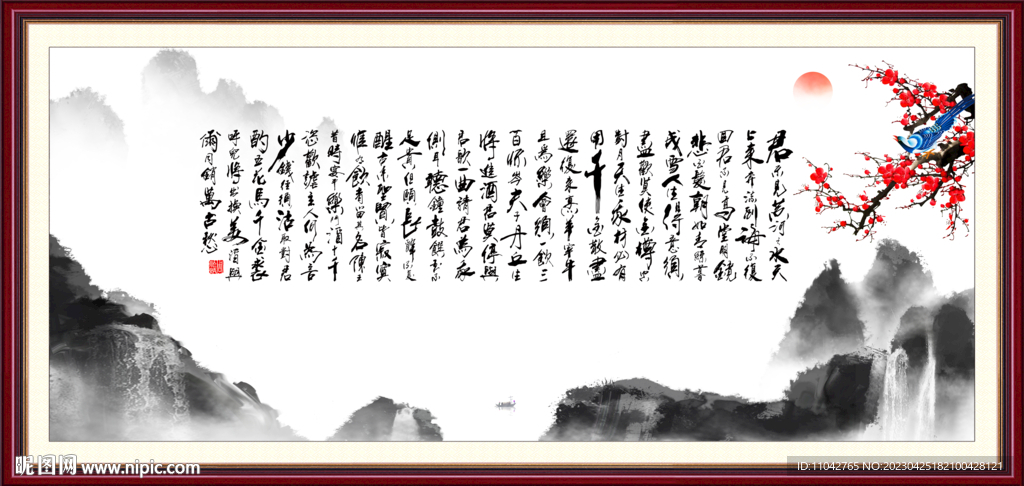 君不見黃河之水天
上來奔流到海不復
回君不見高堂明鏡
悲白髮朝如青絲暮
成雪人生得意須
盡歡莫使金樽空
對月天生我材必有
用千金散盡
還復來烹羊宰牛
且爲樂會須一飲三
百杯岑夫子丹丘生
將進酒君莫停與
君歌一曲請君爲我
側耳聽鐘鼓饌玉不
足貴但願長醉不復
醒古來聖賢皆寂寞
惟有飲者留其名陳王
昔時宴平樂酒十千
恣歡謔主人何爲言
少錢徑須沽取對君
酌五花馬千金裘
呼兒將出換美酒與
爾同銷萬古愁
昵图网 www.nipic.com
ID:11042765 NO:20230425182100428121